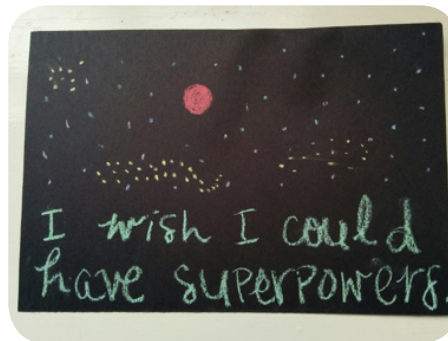 I wish I could
have superpowers.